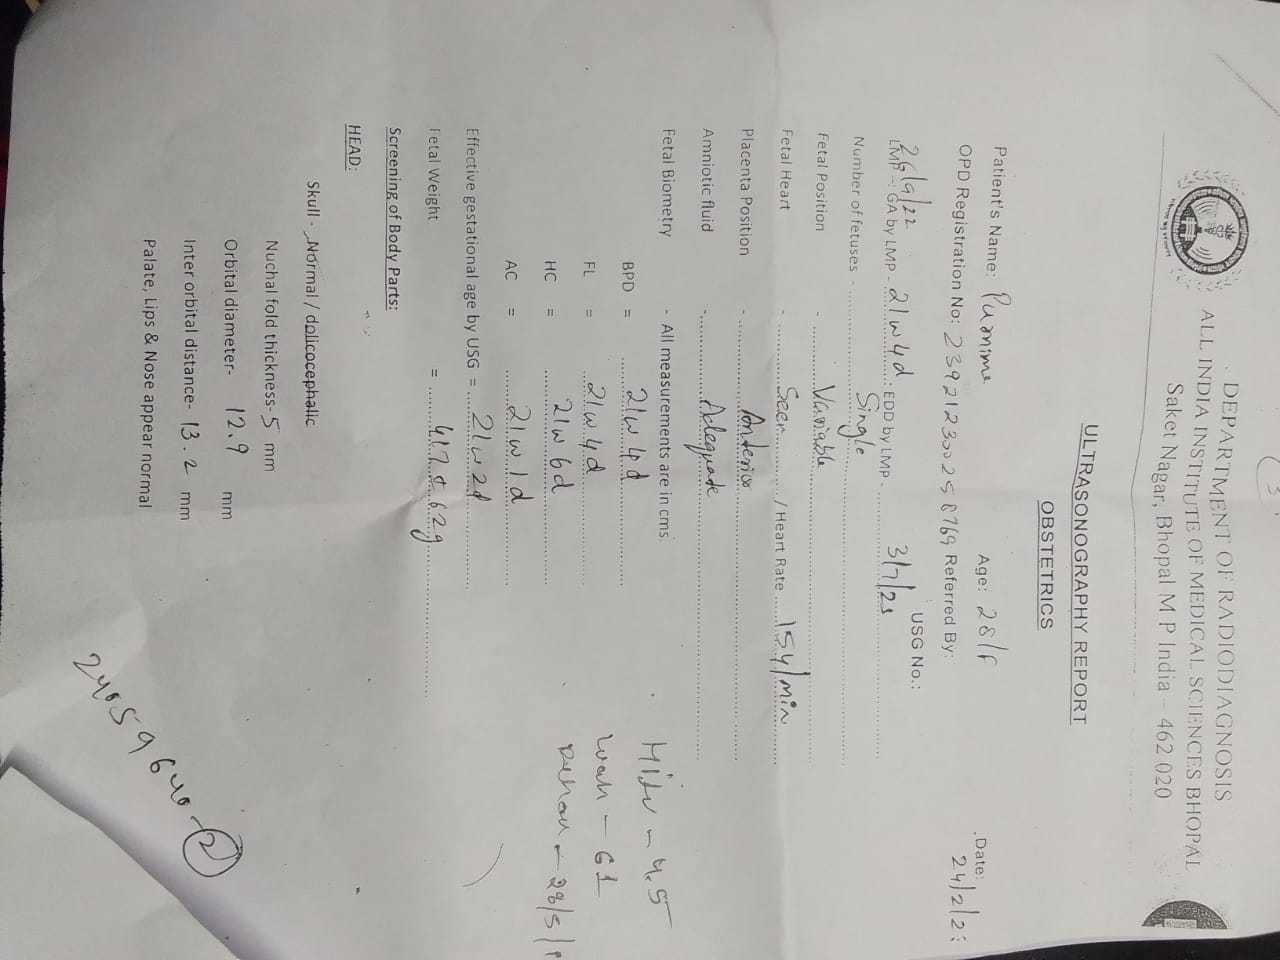 DEPARTMENT OF RADIODIAGNOSIS
ALL INDIA INSTITUTE OF MEDICAL SCIENCES BHOPAL
Saket Nagar, Bhopal M P India – 462 020
ULTRASONOGRAPHY REPORT
OBSTETRICS
Patient's Name: Age: 28/F Date: 24/2/2
OPD Registration No: 2392123002 58769 Referred By:
26/9/22 USG No.:
LMP -: GA by LMP - 21w4d : EDD by LMP - 3/7/23
Number of fetuses - Single
Fetal Position - Variable
Fetal Heart - Seen / Heart Rate 154/min
Placenta Position - Anterior
Amniotic fluid - Adequate
Fetal Biometry - All measurements are in cms.
BPD = 21w4d
FL = 21w4d
HC = 21w6d
AC = 21w1d
Effective gestational age by USG = 21w2d
Fetal Weight = 417± 62g
- 4.5
- 61
- 28/5/
Screening of Body Parts:
HEAD:
Skull - Normal / dolicocephalic
Nuchal fold thickness- 5 mm
Orbital diameter- 12.9 mm
Inter orbital distance- 13.2 mm
Palate, Lips & Nose appear normal
24059640-2